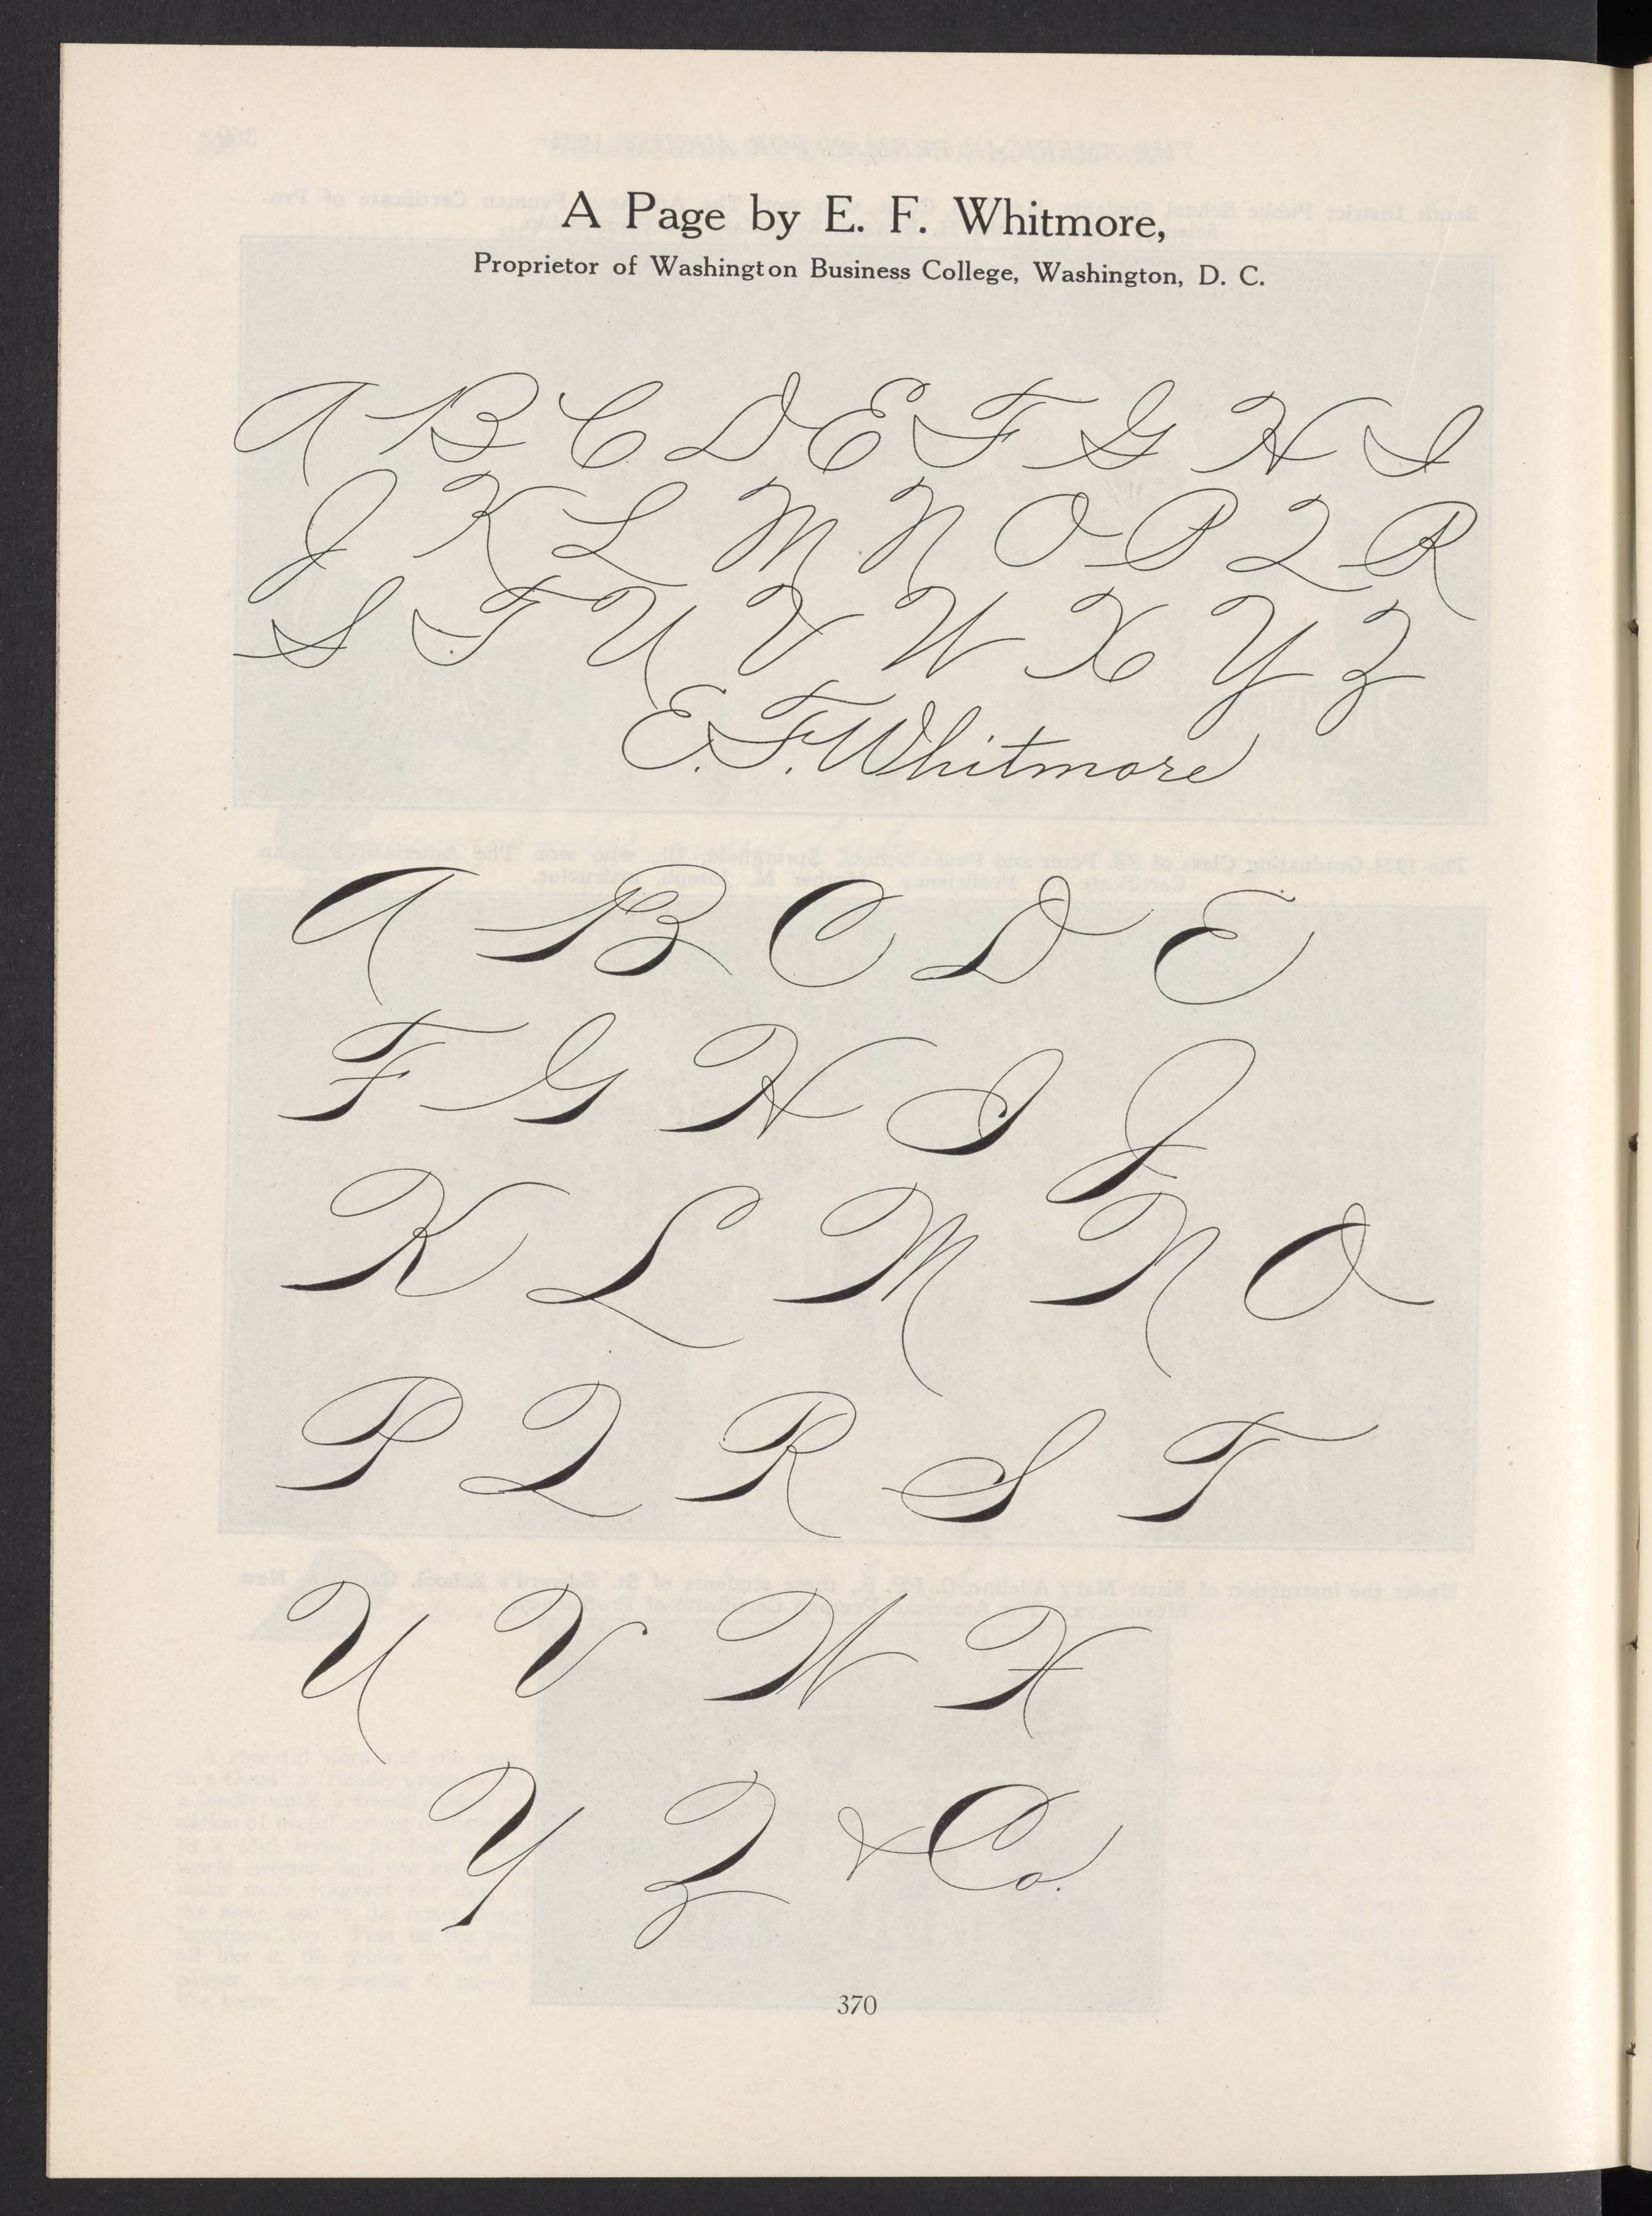 A Page by E. F. Whitmore,
Proprietor of Washington Business College, Washington, D. C.
A B C D E F G H I
J K L M N O P Q R
S T U V W X Y Z
E. F. Whitmore
A B C D E
F G H I J
K L M N O
P Q R S T
U V W X
Y Z & Co.
370